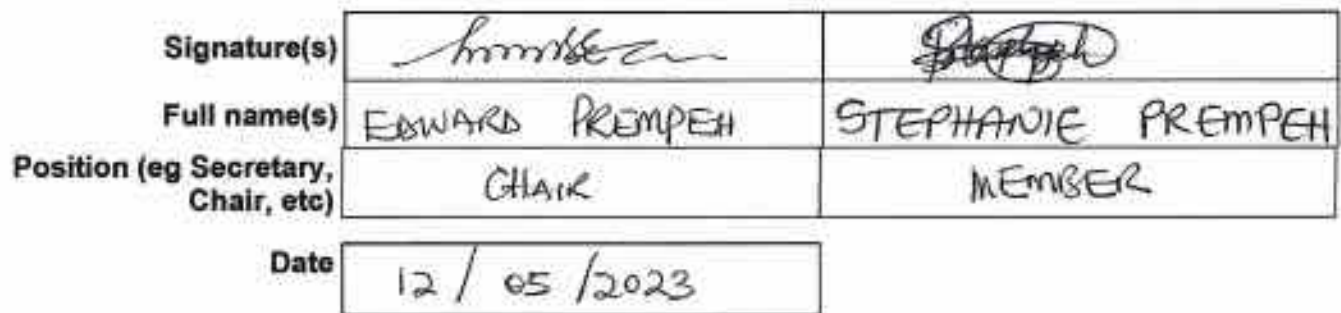 Signature(s)
Full name(s) EDWARD PREMPEH STEPHANIE PREMPEH
Position (eg Secretary,
Chair, etc) CHAIR MEMBER
Date 12 / 05 /2023